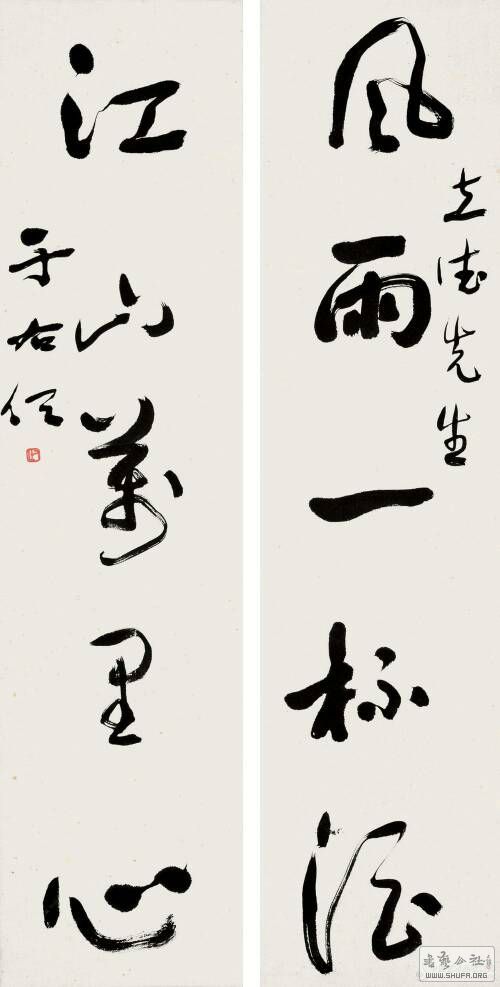 风雨一杯酒
立德先生
江山萬里心
于右任
書藝公社
WWW.SHUFA.ORG